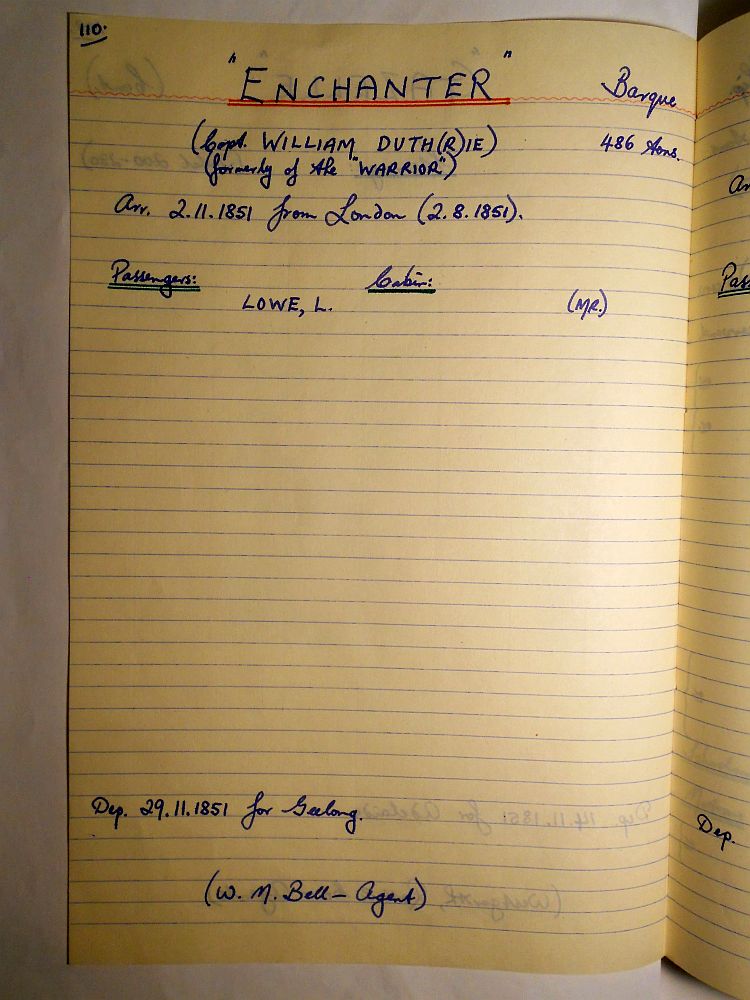 110.
"ENCHANTER" Barque
(Capt. WILLIAM DUTH(R)IE) 486 tons.
(formerly of the "WARRIOR")
Arr. 2.11.1851 from London (2.8.1851).
Passengers: Cabin:
LOWE, L. (MR.)
Dep. 29.11.1851 for Geelong.
(W. M. Bell - Agent)
Ar
Pas
Dep.